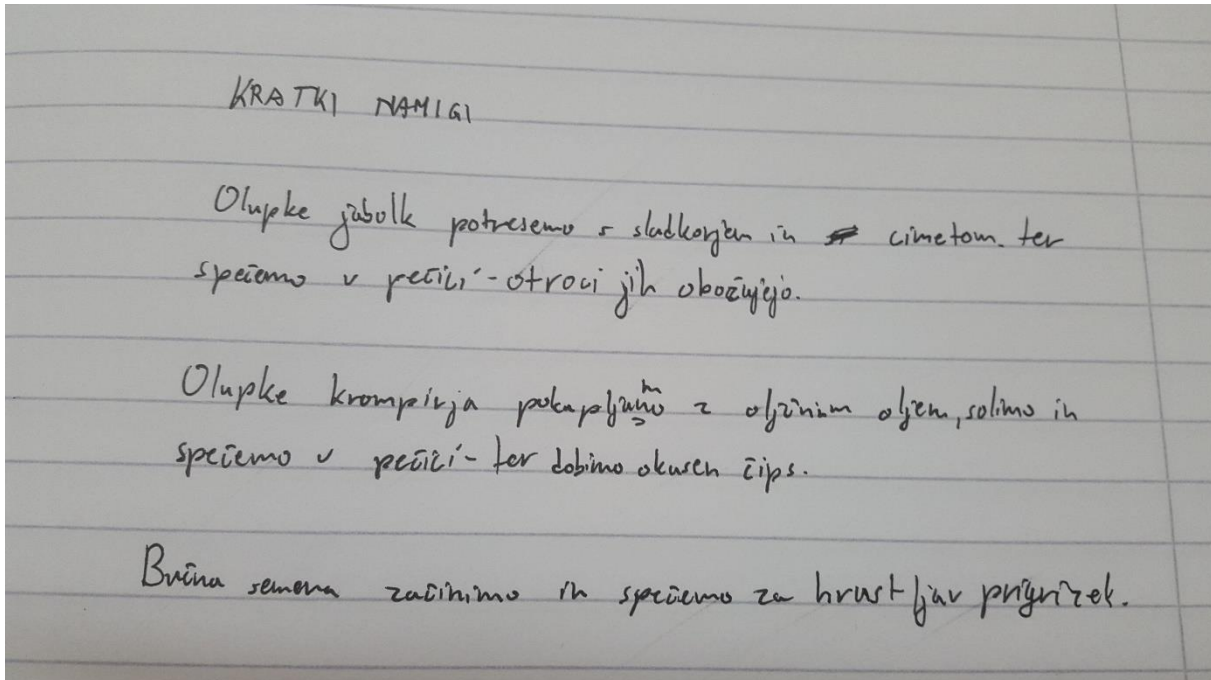 KRATKI NAMIGI
Olupke jabolk potresemo s sladkorjem in cimetom. ter
spečemo v pečici - otroci jih obožujejo.
Olupke krompirja pokapljamo z oljčnim oljem, solimo in
spečemo v pečici - ter dobimo okusen čips.
Bučna semena začinimo in spečemo za hrustljav prigrizek.